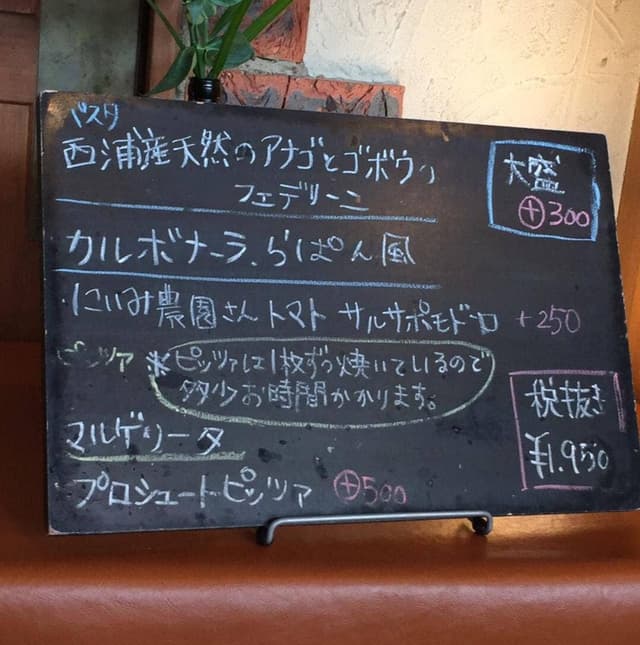 パスタ
西浦産天然のアナゴとゴボウの
フェデリーニ
大盛
⊕300
カルボナーラ.らぱん風
・にいみ農園さんトマト サルサポモドロ +250
ピッツァ ※ピッツァは1枚ずつ焼いているので
多少お時間かかります。
マルゲリータ
プロシュートピッツァ ⊕500
税抜き
¥1.950